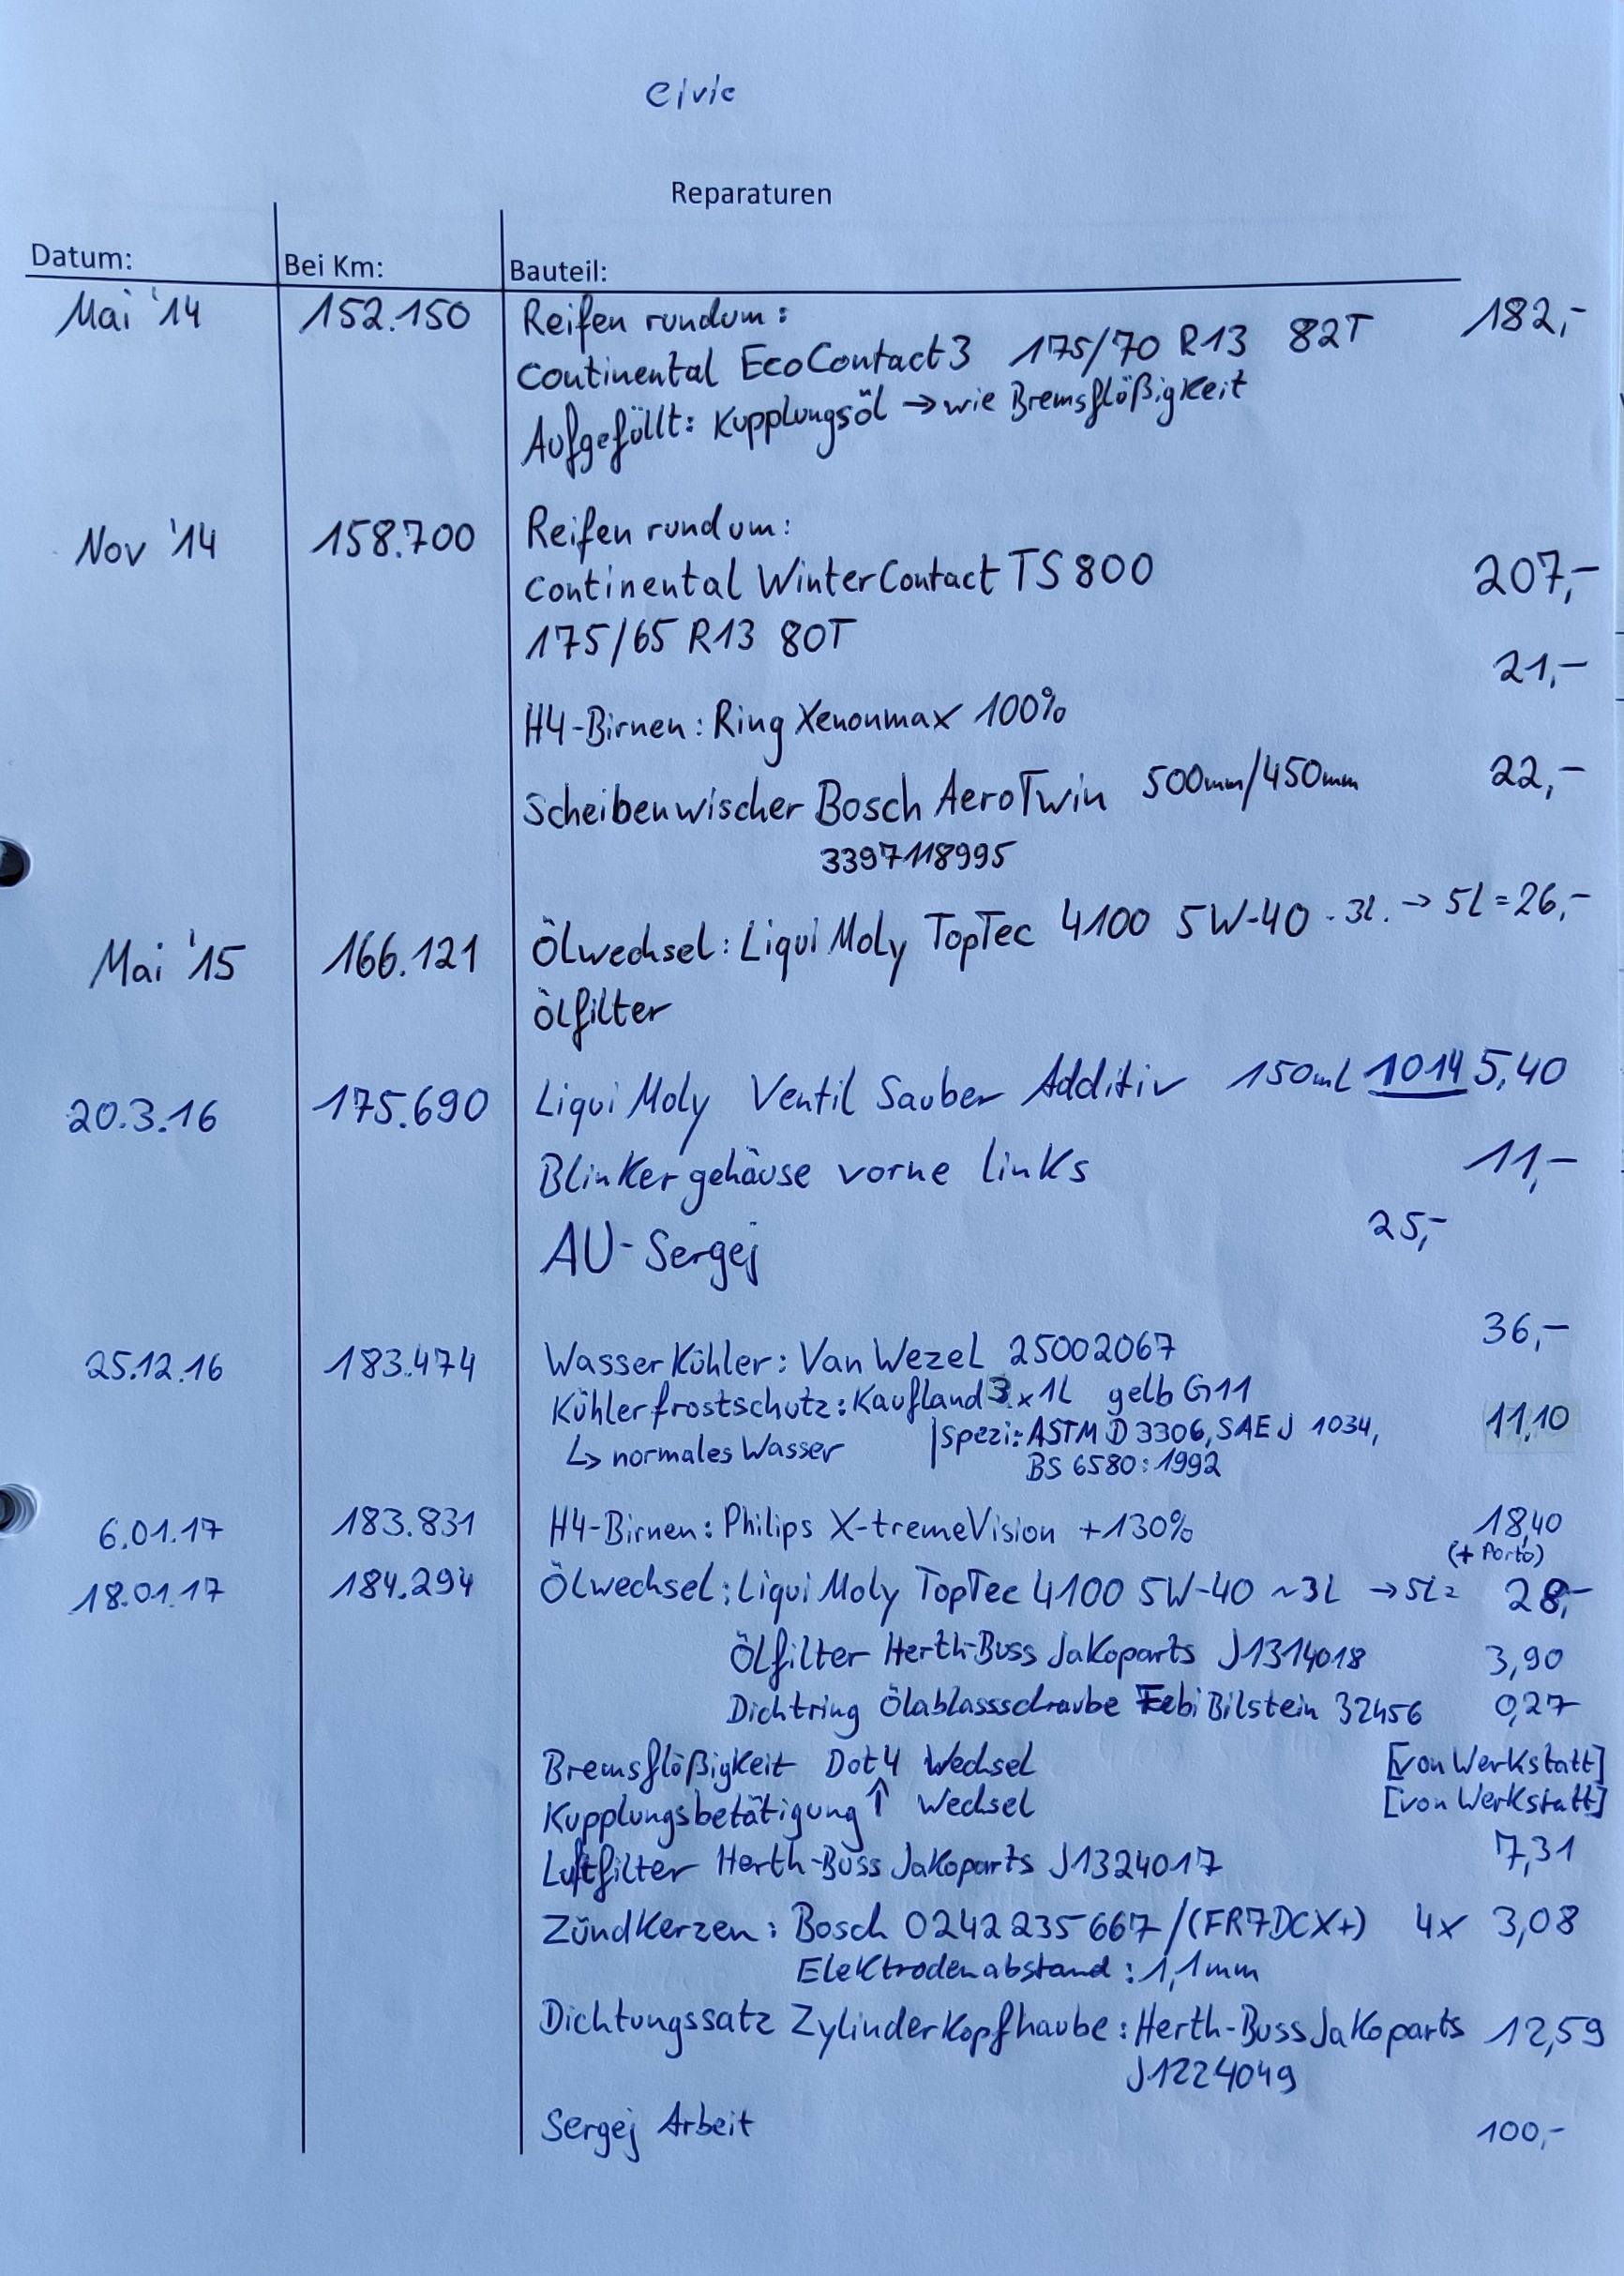 Civic
Reparaturen
Datum: Bei Km: Bauteil:
Mai '14 152.150 Reifen rundum: 182,-
Continental EcoContact3 175/70 R13 82T
Aufgefüllt: Kupplungsöl → wie Bremsflüßigkeit
Nov '14 158.700 Reifen rundum:
Continental WinterContact TS 800 207,-
175/65 R13 80T
21,-
H4-Birnen: Ring Xenonmax 100%
Scheibenwischer Bosch AeroTwin 500mm/450mm 22,-
3397118995
Mai '15 166.121 Ölwechsel: Liqui Moly TopTec 4100 5W-40 - 3l. → 5l = 26,-
Ölfilter
20.3.16 175.690 Liqui Moly Ventil Sauber Additiv 150ml 1014 5,40
Blinkergehäuse vorne links 11,-
AU-Sergej 25,-
36,-
25.12.16 183.474 Wasserkühler: Van Wezel 25002067
Kühlerfrostschutz: Kaufland 3 x 1L gelb G11 11,10
↳ normales Wasser | Spezi: ASTM D 3306, SAE J 1034,
BS 6580:1992
6.01.17 183.831 H4-Birnen: Philips X-tremeVision +130% 18,40
(+ Porto)
18.01.17 184.294 Ölwechsel: Liqui Moly TopTec 4100 5W-40 ~3L → 5L = 28,-
Ölfilter Herth-Buss Jakoparts J1314018 3,90
Dichtring Ölablassschraube Febi Bilstein 32456 0,27
Bremsflüßigkeit Dot4 Wechsel [von Werkstatt]
Kupplungsbetätigung ↑ Wechsel [von Werkstatt]
Luftfilter Herth-Buss Jakoparts J1324017 7,31
Zündkerzen: Bosch 0242 235 667 / (FR7DCX+) 4x 3,08
Elektrodenabstand: 1,1mm
Dichtungssatz Zylinderkopfhaube: Herth-Buss Jakoparts 12,59
J1224049
Sergej Arbeit 100,-